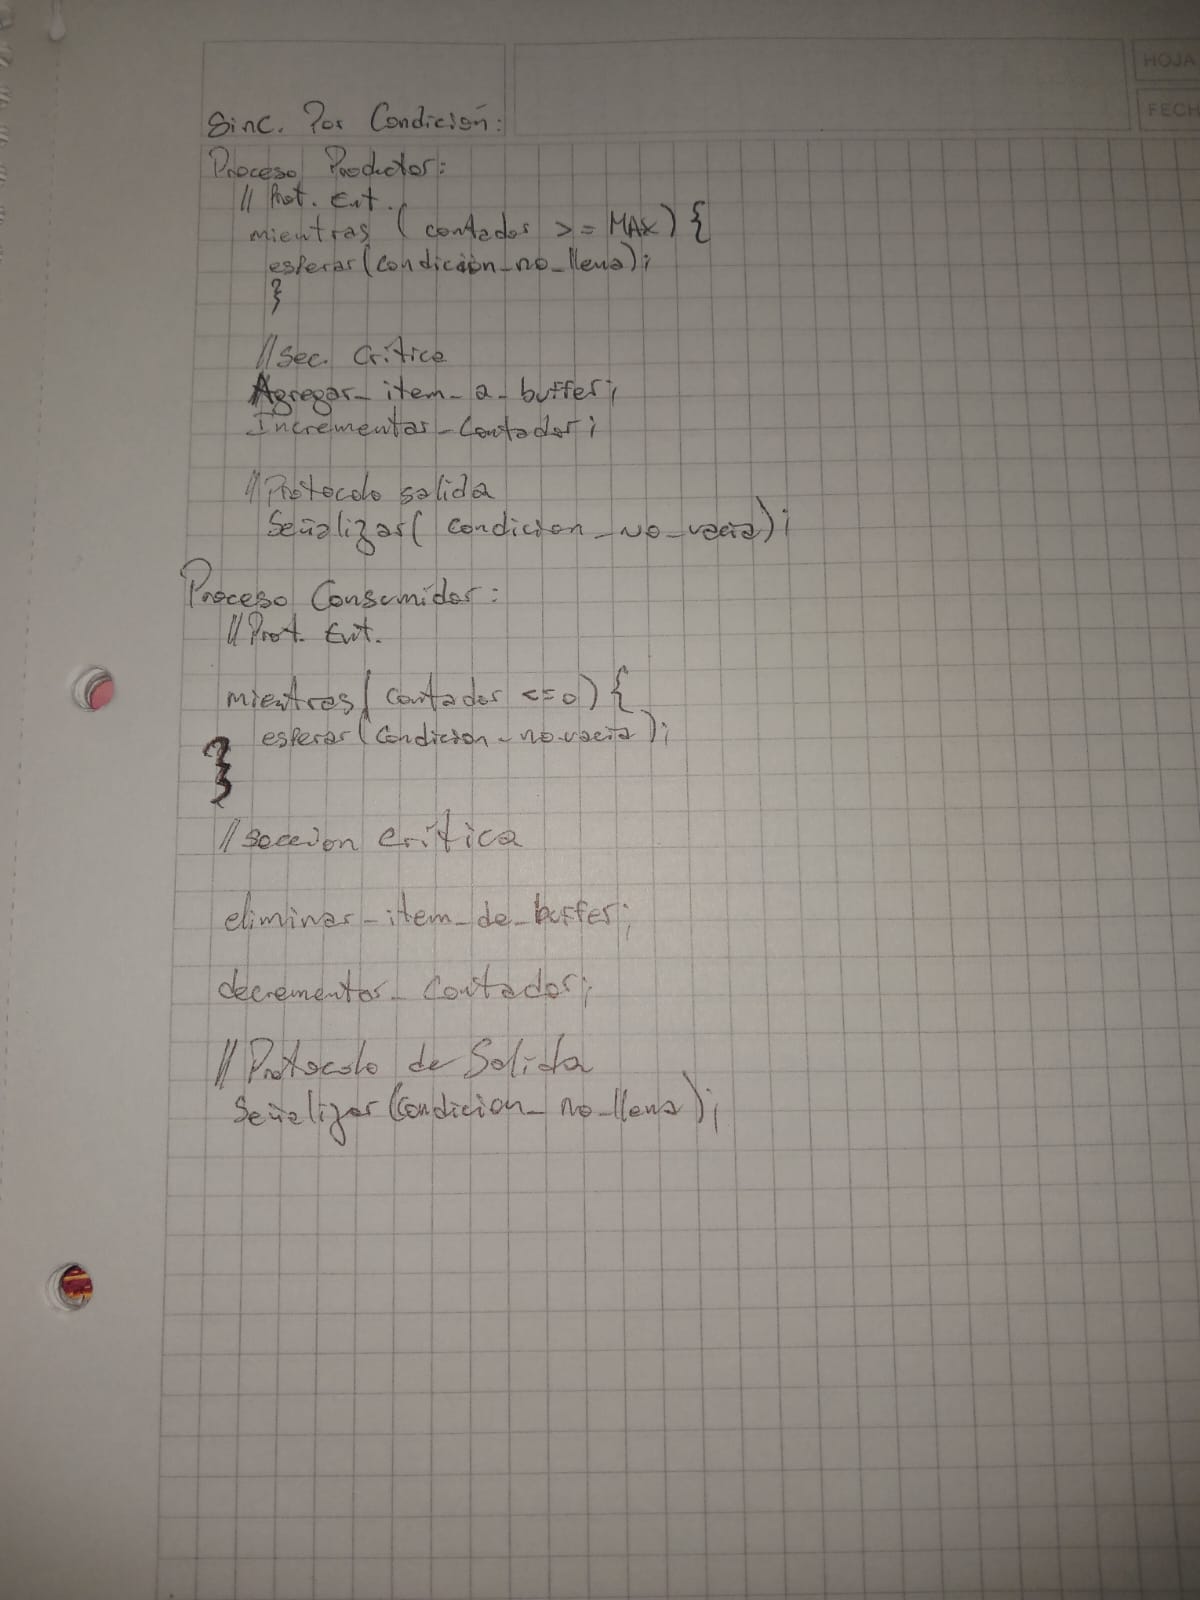 HOJA
FECH
Sinc. Por Condición:
Proceso Productor:
// Prot. Ent.
mientras ( contador >= MAX) {
esperar(condición_no_llena);
}
// Sec. Crítica
Agregar_item_a_buffer;
Incrementar_Contador;
// Protocolo salida
Señalizar( condicion_no_vacia);
Proceso Consumidor:
// Prot. Ent.
mientras( contador <=0) {
esperar(Condicion_no_vacia);
}
// seccion crítica
eliminar_item_de_buffer;
decrementar_contador;
// Protocolo de Salida
Señalizar(condicion_no_llena);